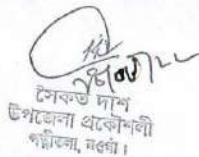 সৈকত দাশ
উপজেলা প্রকৌশলী
পত্নীতলা, নওগাঁ।